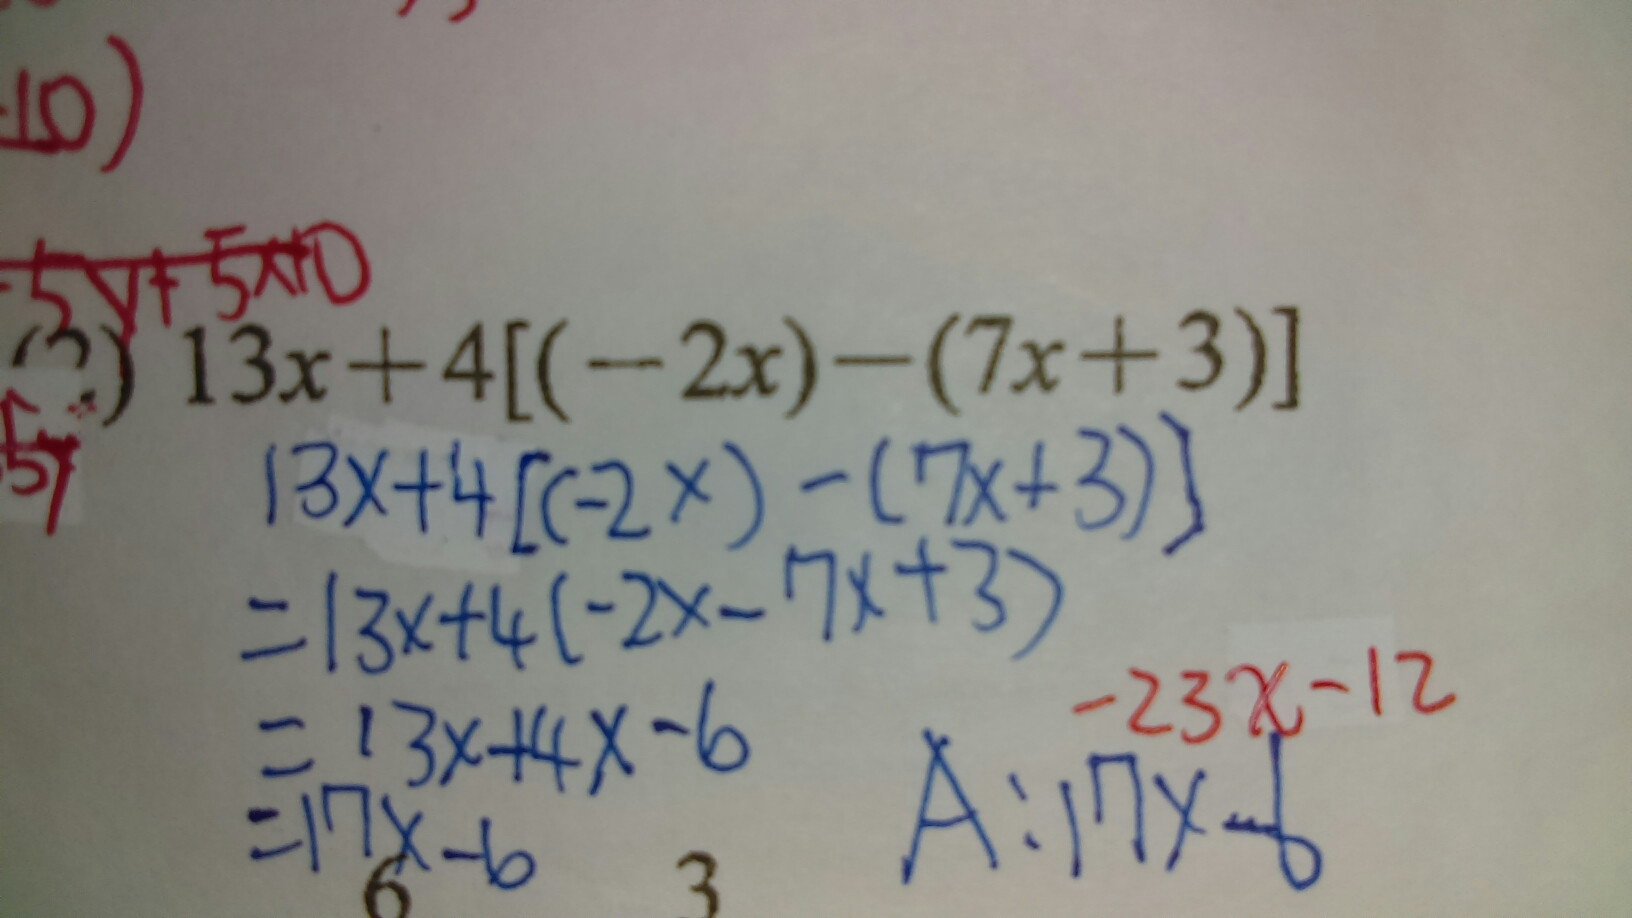 -10)
-5y+5x+10
) 13x+4[(-2x)-(7x+3)]
13x+4[(-2x)-(7x+3)]
=13x+4(-2x-7x+3)
=13x+4x-6
-23x-12
=17x-6
A:17x-6
6 3